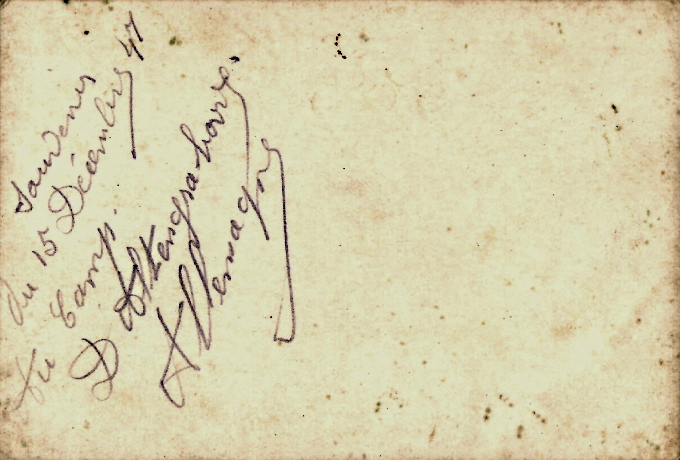 Souvenir
du 15 Décembre 41
du Camp.
D Altengrabow.
Allemagne